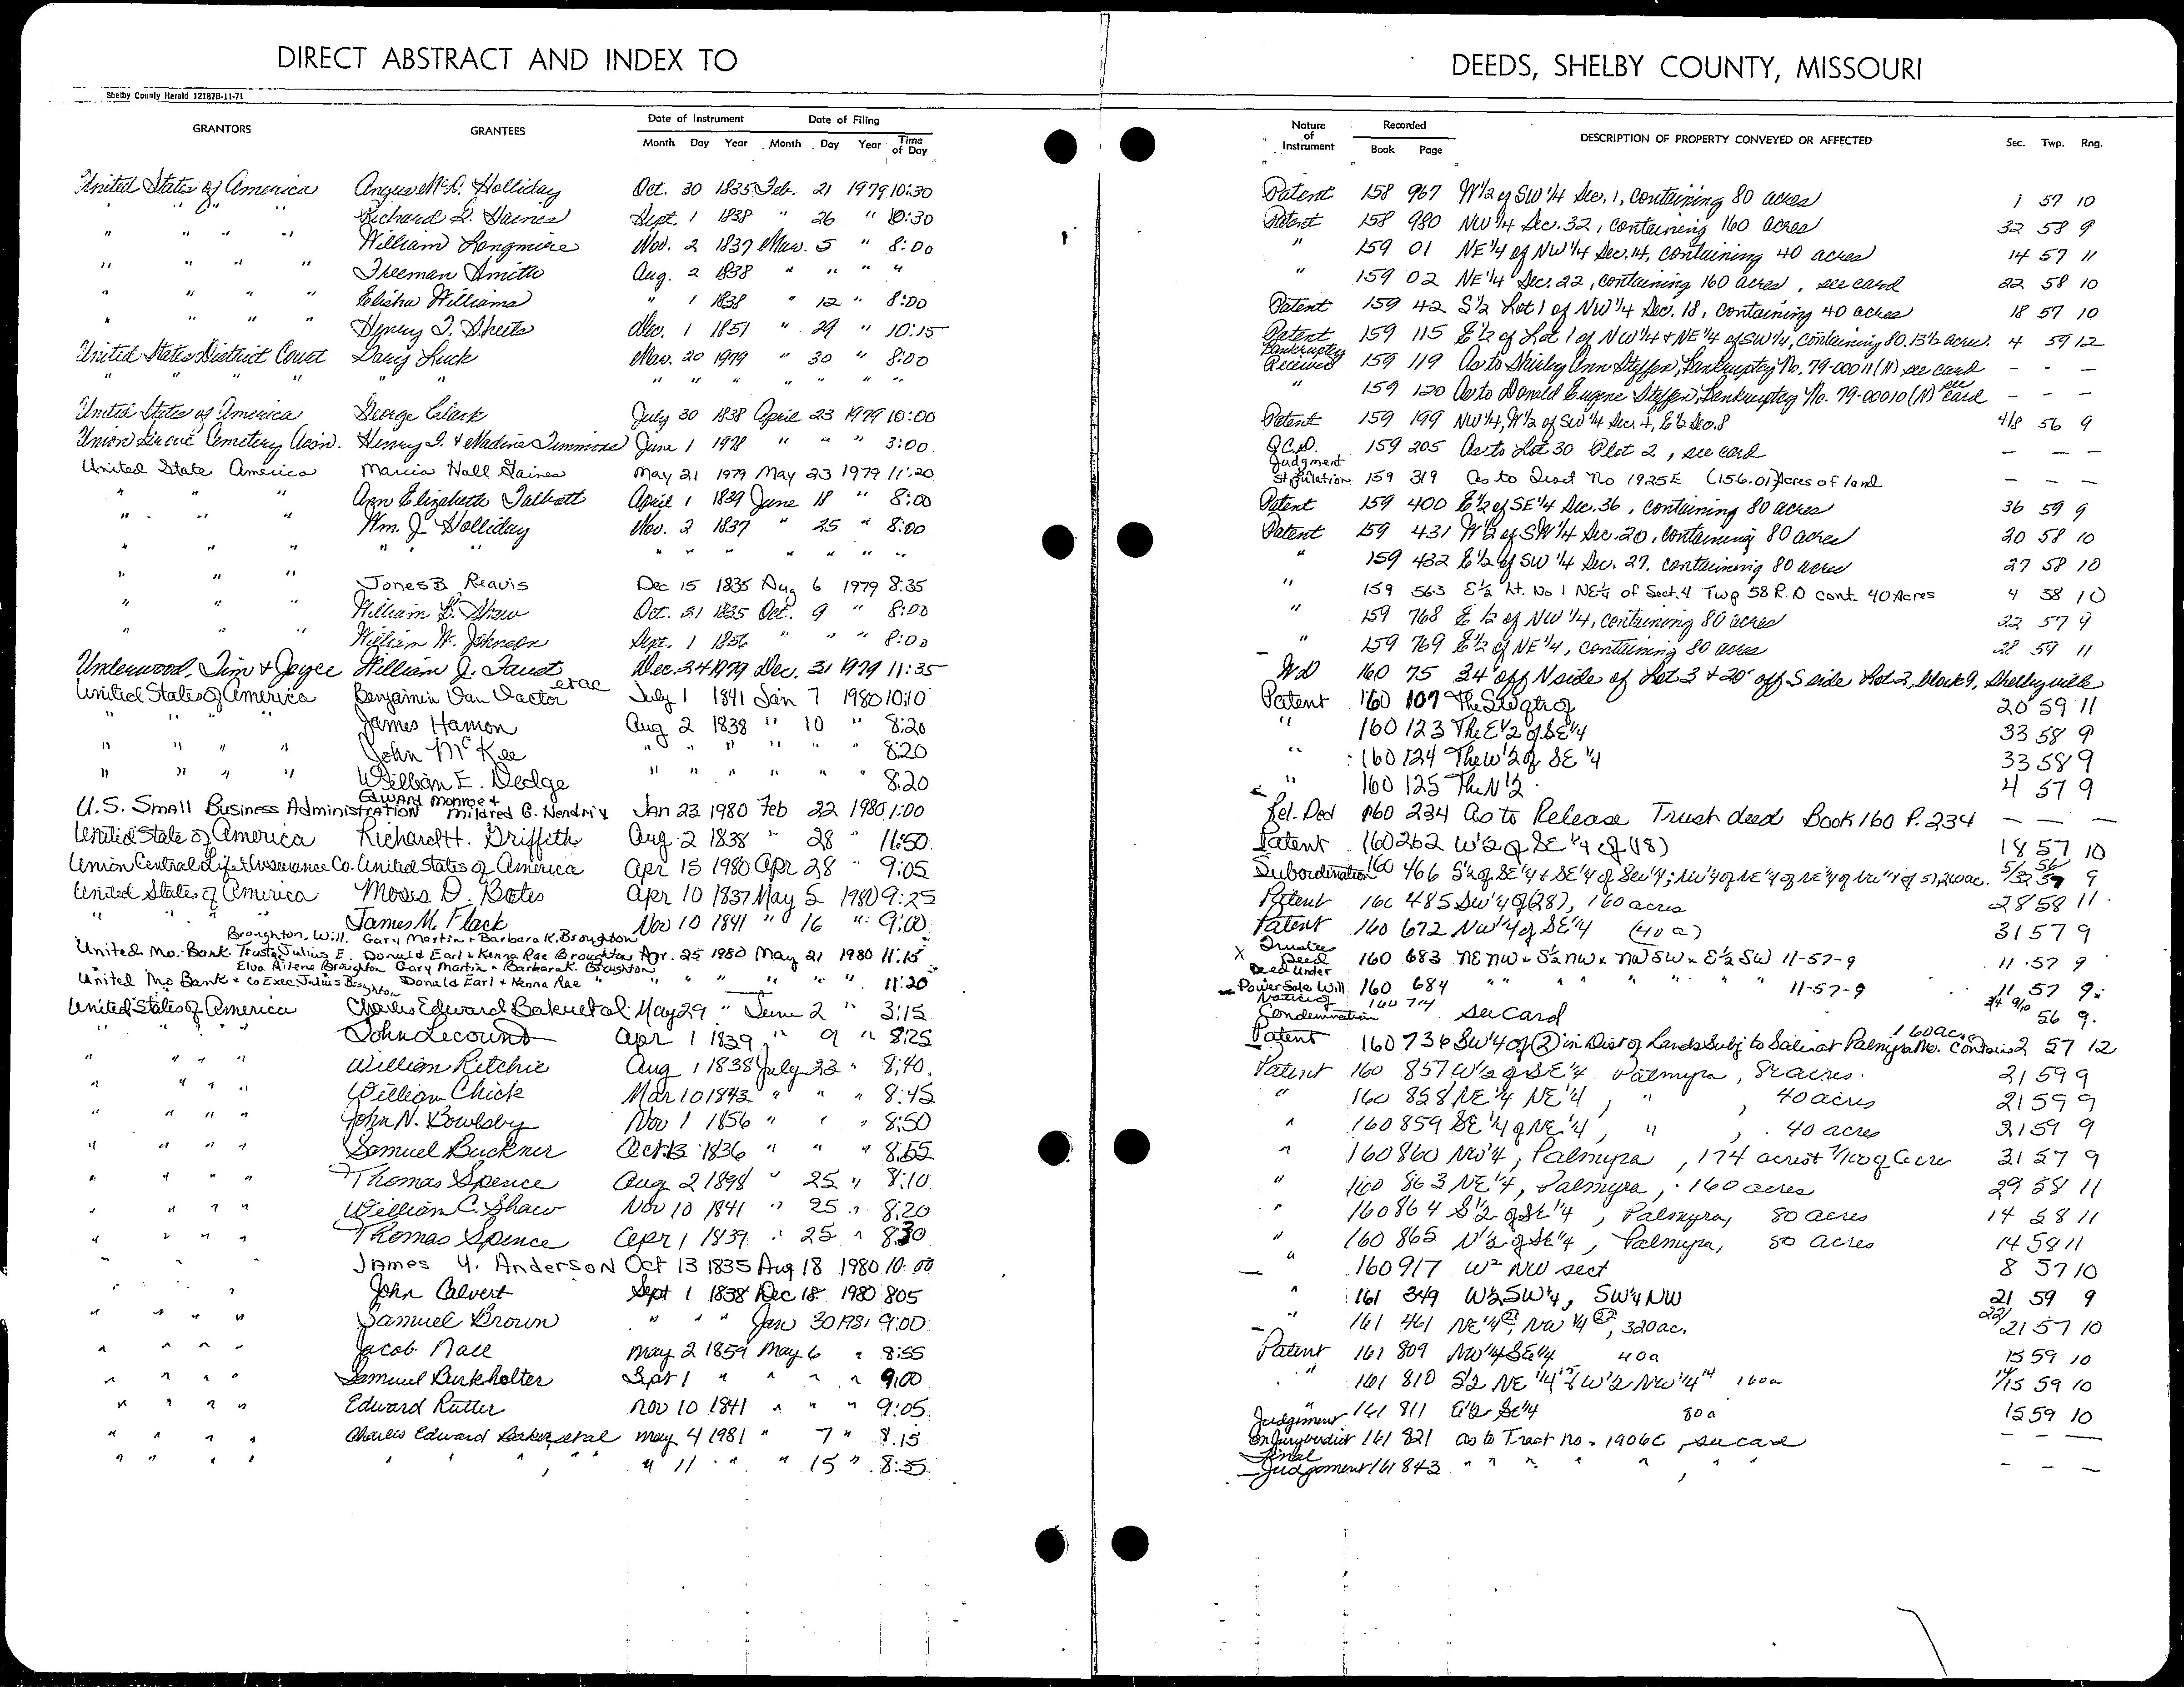 DIRECT ABSTRACT AND INDEX TO DEEDS, SHELBY COUNTY, MISSOURI
Shelby County Herald 12187B-11-71
GRANTORS GRANTEES Date of Instrument Month Day Year Date of Filing Month Day Year Time of Day Nature of Instrument Recorded Book Page DESCRIPTION OF PROPERTY CONVEYED OR AFFECTED Sec. Twp. Rng.
United States of America Angus McD. Holliday Oct. 30 1835 Feb. 21 1979 10:30 Patent 158 967 W1/2 of SW 1/4 Sec. 1, containing 80 acres 1 57 10
" " " Richard D. Haines Sept. 1 1838 " 26 " 10:30 Patent 158 980 NW 1/4 Sec. 32, containing 160 acres 32 58 9
" " " " William Longmire Nov. 2 1837 Mar. 5 " 8:00 " 159 01 NE 1/4 of NW 1/4 Sec. 14, containing 40 acres 14 57 11
" " " " Freeman Smith Aug. 2 1838 " " " " " 159 02 NE 1/4 Sec. 22, containing 160 acres, see card 22 58 10
" " " " Elisha Williams " 1 1838 " 12 " 8:00 Patent 159 42 S1/2 Lot 1 of NW 1/4 Sec. 18, containing 40 acres 18 57 10
" " " " Henry T. Sheets Dec. 1 1851 " 29 " 10:15 Patent 159 115 E 1/2 of Lot 1 of NW 1/4 + NE 1/4 of SW 1/4, containing 80.13 1/2 acres. 4 59 12
United States District Court Lucy Luck Mar. 20 1979 " 30 " 8:00 Bankruptcy Received 159 119 As to Shirley Ann Steffen, Bankruptcy No. 79-00011 (N) see card - - -
" " " " " " " " " " " " " 159 120 As to Donald Eugene Steffen, Bankruptcy No. 79-00010 (N) see card - - -
United States of America George Clark July 30 1838 April 23 1979 10:00 Patent 159 199 NW 1/4, W 1/2 of SW 1/4 Sec. 4, E 1/2 Sec. 8 4/8 56 9
Union Grove Cemetery Assn. Henry I. & Nadine Timmons June 1 1978 " " " 3:00 Q.C.D. 159 205 As to Lot 30 Plot 2, see card - - -
United State America Marcia Hall Gaines May 21 1979 May 23 1979 11:20 Judgment Stipulation 159 319 As to Tract No 1925E (156.01) Acres of land - - -
" " " Ann Elizabeth Talbott April 1 1839 June 18 " 8:00 Patent 159 400 E 1/2 of SE 1/4 Sec. 36, containing 80 acres 36 59 9
" " " Wm. J. Holliday Nov. 2 1837 " 25 " 8:00 Patent 159 431 W 1/2 of SW 1/4 Sec. 20, containing 80 acres 20 58 10
" " " " " " " " " " " " " 159 432 E 1/2 of SW 1/4 Sec. 27, containing 80 acres 27 58 10
" " " Jones B Reavis Dec 15 1835 Aug 6 1979 8:35 " 159 563 E 1/2 Lt. No 1 NE 1/4 of Sect. 4 Twp 58 R. 10 cont. 40 Acres 4 58 10
" " " William B. Shaw Oct. 31 1835 Oct. 9 " 8:00 " 159 768 E 1/2 of NW 1/4, containing 80 acres 22 57 9
" " " William W. Johnson Sept. 1 1856 " " " 8:00 " 159 769 E 1/2 of NE 1/4, containing 80 acres 28 59 11
Underwood, Jim & Joyce William J. Faust etac Dec. 24 1979 Dec. 31 1979 11:35 WD 160 75 24' off N side of Lot 3 + 20' off S side Lot 2, block 9, Shelbyville
United States of America Benjamin Van Vactor July 1 1841 Jan 7 1980 10:10 Patent 160 107 The SW qtr of 20 59 11
" " " " James Hamon Aug 2 1838 " 10 " 8:20 " 160 123 The E 1/2 of SE 1/4 33 58 9
" " " " John McKee " " " " " " 8:20 " 160 124 The W 1/2 of SE 1/4 33 58 9
" " " " William E. Dedge " " " " " " 8:20 " 160 125 The N 1/2 4 57 9
U.S. Small Business Administration Edward Monroe + Mildred G. Hendrix Jan 23 1980 Feb 22 1980 1:00 Rel. Ded 160 234 As to Release Trust deed Book 160 P. 234 - - -
United State of America Richard H. Griffith Aug 2 1838 " 28 " 11:50 Patent 160 262 W 1/2 of SE 1/4 of (18) 18 57 10
Union Central Life Insurance Co. United States of America Apr 15 1980 Apr 28 " 9:05 Subordination 160 466 S 1/2 of SE 1/4 + SE 1/4 of SW 1/4; 9
United States of America Moses D. Bates Apr 10 1837 May 5 1980 9:25 Patent 160 485 SW 1/4 of (28), 160 acres 28 58 11
" " " James M. Flack Nov 10 1841 " 16 " 9:00 Patent 160 672 NW 1/4 of SE 1/4 (40 a) 31 57 9
Broughton, Will. Gary Martin + Barbara K. Broughton
United Mo. Bank Trustee Julius E. Donald Earl + Kenna Rae Broughton Apr. 25 1980 May 21 1980 11:15 X Trustees Deed 160 683 NE NW + S 1/2 NW + NW SW + E 1/2 SW 11-57-9 11 57 9
Elva Ailene Broughton Gary Martin + Barbara K. Broughton
United Mo Bank + Co Exec. Julius Broughton Donald Earl + Kenna Rae " " " " " " " 11:20 Deed Under Power Sale Will 160 684 " " " " " " 11-57-9 11 57 9
United States of America Charles Edward Baker et al May 29 " June 2 " 3:15 Notice of Condemnation 160 714 see card 56 9
" " " " John Lecount Apr 1 1839 " 9 " 8:25 Patent 160 736 SW 1/4 of (2) in Dist of Lands Subj to Sale at Palmyra Mo. Contains 160 ac. 2 57 12
" " " " William Ritchie Aug 1 1838 July 23 " 8:40 Patent 160 857 W 1/2 of SE 1/4 Palmyra, 80 acres. 21 59 9
" " " " William Chick Mar 10 1843 " " " 8:45 " 160 858 NE 1/4 NE 1/4, " , 40 acres 21 59 9
" " " " John N. Bowlsby Nov 1 1856 " " " 8:50 " 160 859 SE 1/4 of NE 1/4, " , 40 acres 21 59 9
" " " " Samuel Buckner Oct 13 1836 " " " 8:55 " 160 860 NW 1/4, Palmyra, 174 acres 31 57 9
" " " " Thomas Spence Aug 2 1898 " 25 " 8:10 " 160 863 NE 1/4, Palmyra, 160 acres 29 58 11
" " " " William C. Shaw Nov 10 1841 " 25 " 8:20 " 160 864 S 1/2 of SE 1/4, Palmyra, 80 acres 14 58 11
" " " " Thomas Spence Apr 1 1839 " 25 " 8:30 " 160 865 N 1/2 of SE 1/4, Palmyra, 80 acres 14 58 11
James Y. Anderson Oct 13 1835 Aug 18 1980 10:00 " 160 917 W2 NW sect 8 57 10
" " " John Calvert Sept 1 1838 Dec 18 1980 805 " 161 349 W 1/2 SW 1/4, SW 1/4 NW 21 59 9
" " " " Samuel Brown " " " Jan 30 1981 9:00 " 161 461 NE 1/4 (21), NW 1/4 (22), 320 ac. 22/21 57 10
" " " " Jacob Nall May 2 1859 May 6 " 8:55 Patent 161 809 NW 1/4 SE 1/4 40a 15 59 10
" " " " Samuel Burkholter Sept 1 " " " " 9:00 " 161 810 S 1/2 NE 1/4 15 & W 1/2 NW 1/4 14 160a 14/15 59 10
" " " " Edward Rutter Nov 10 1841 " " " 9:05 " 161 811 E 1/2 SE 1/4 80 a 15 59 10
" " " " Charles Edward Baker, et al May 4 1981 " 7 " 8:15 Judgement on Jury verdict 161 821 As to Tract no. 1906E, see card - - -
" " " " " " " , " 11 " " 15 " 8:35 Final Judgement 161 843 " " " " " , " " - - -